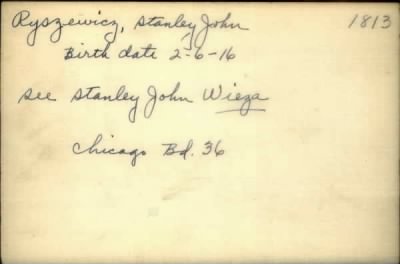 Ryszewicz, Stanley John 1813
Birth date 2-6-16
see Stanley John Wieza
Chicago Bd. 36